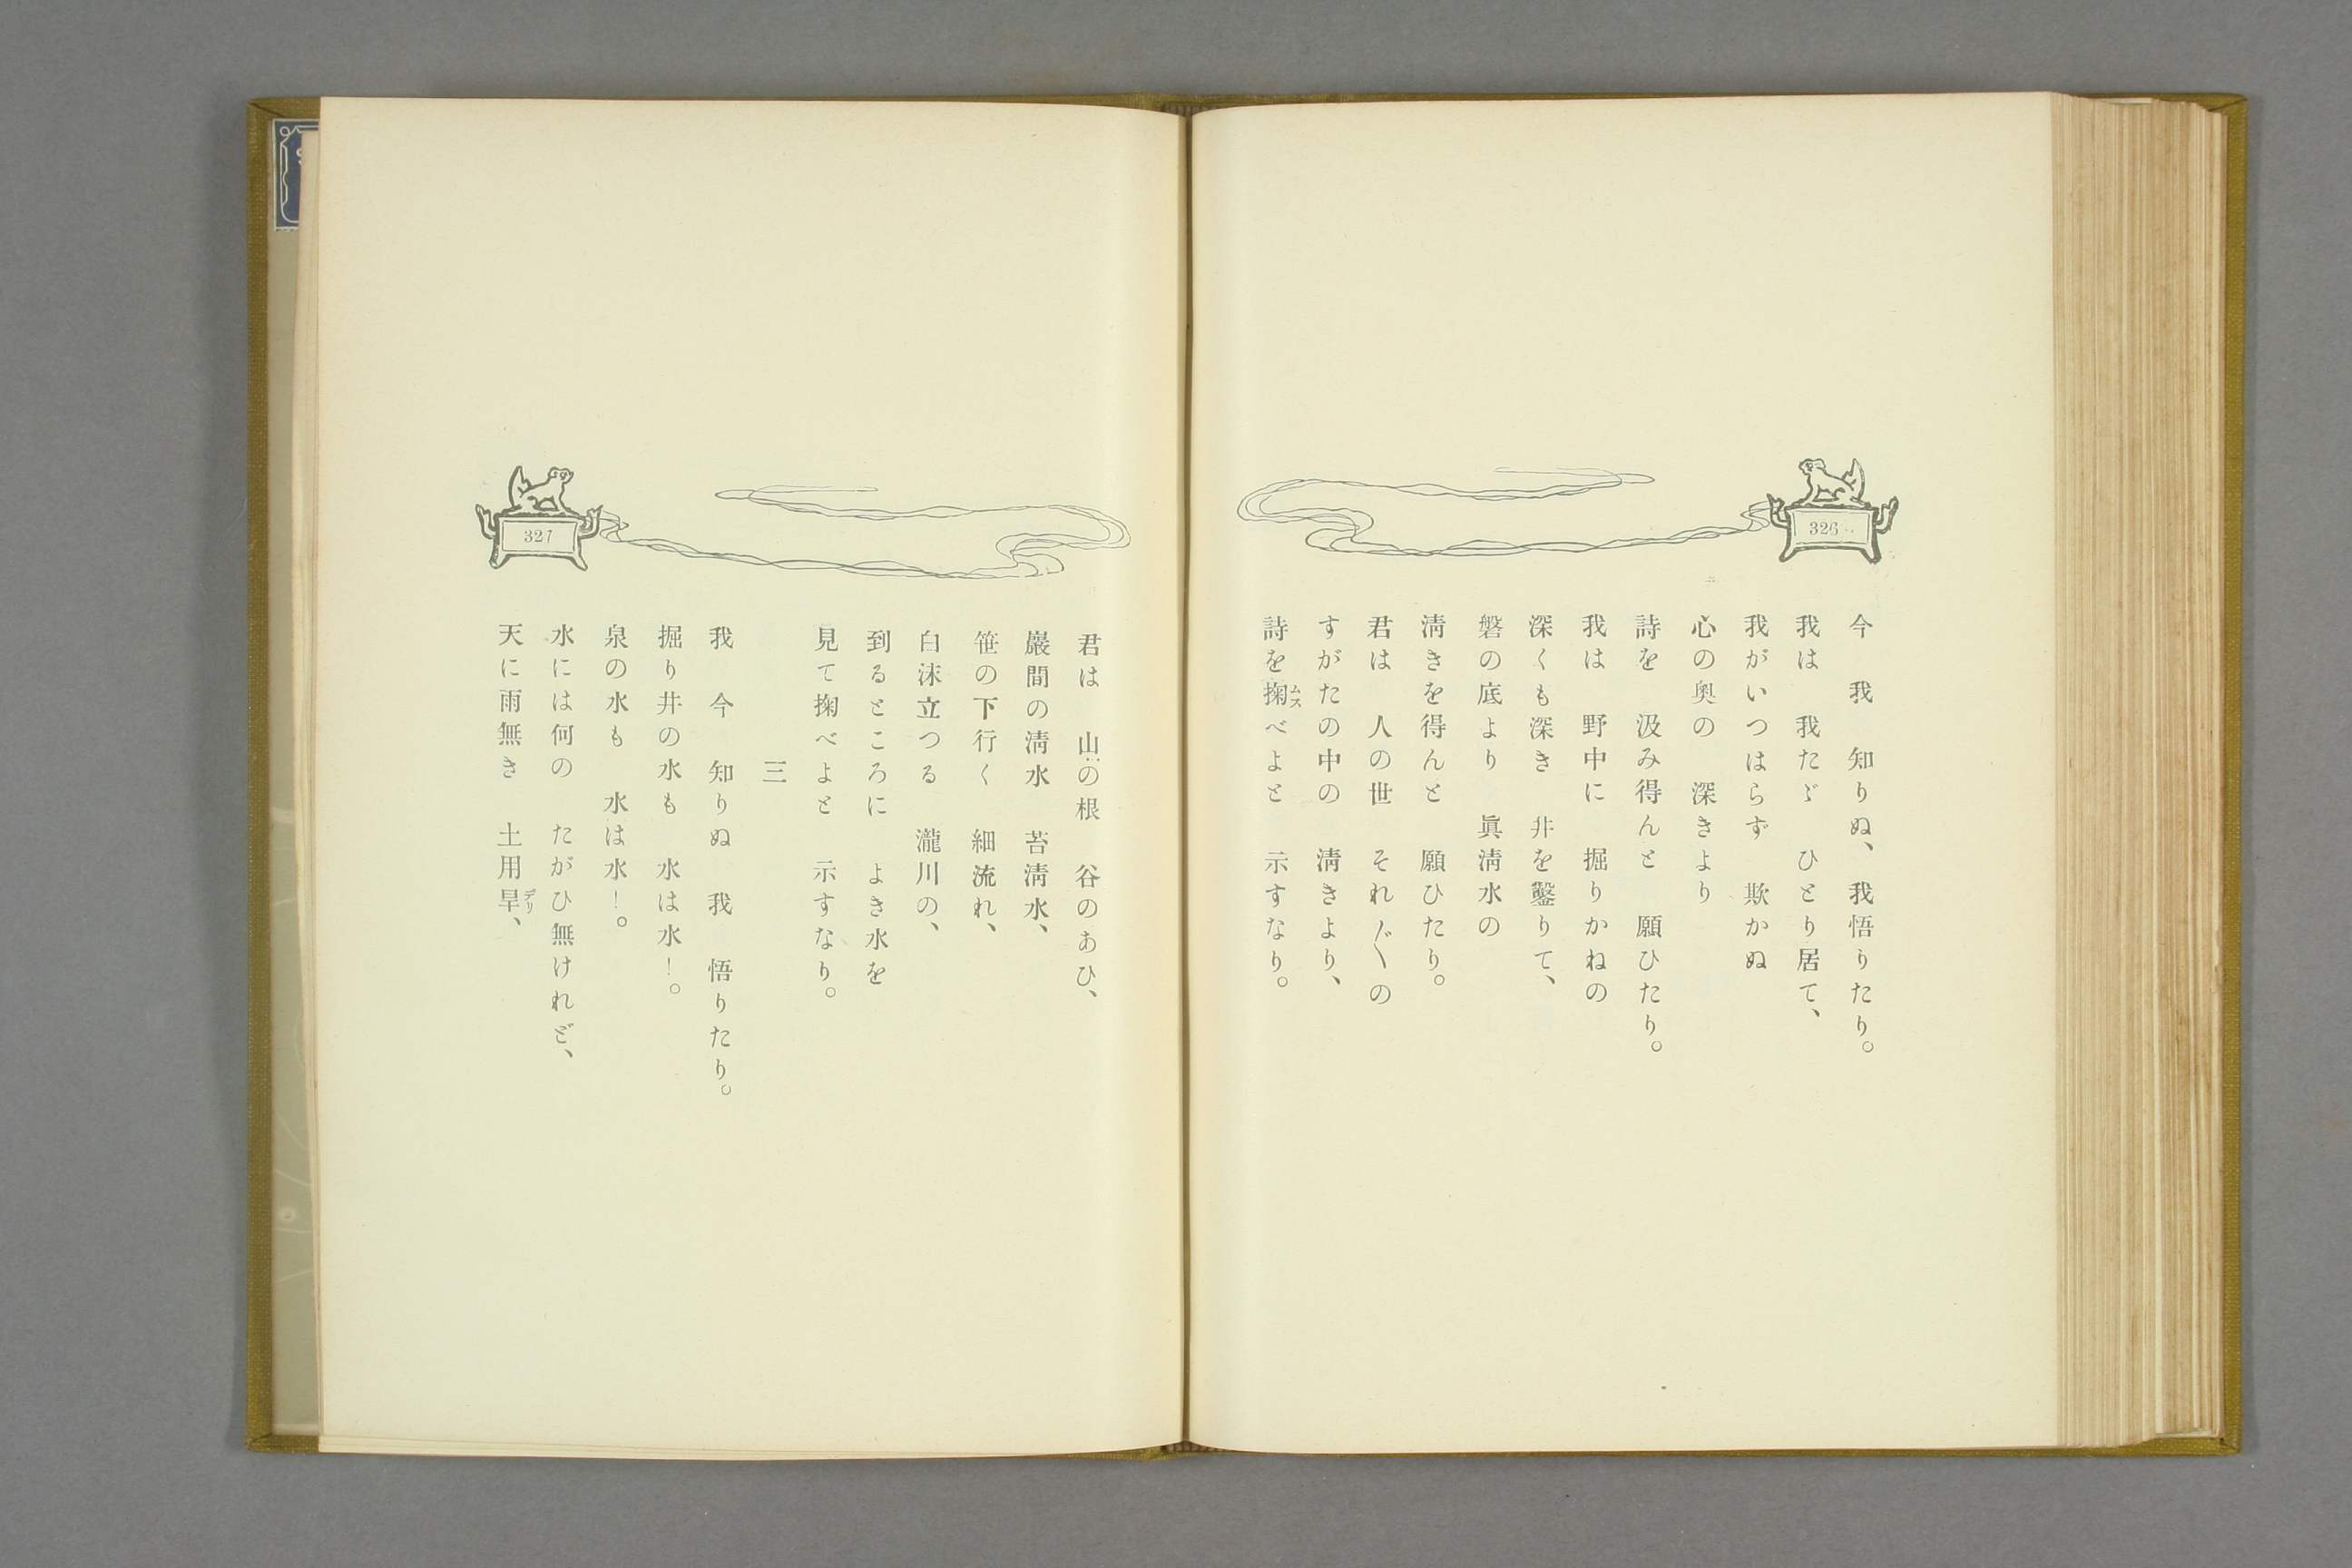 326
今　我　知りぬ、我悟りたり。
我は　我たゞ　ひとり居て、
我がいつはらず　欺かぬ
心の奧の　深きより
詩を　汲み得んと　願ひたり。
我は　野中に　掘りかねの
深くも深き　井を鑿りて、
磐の底より　眞淸水の
淸きを得んと　願ひたり。
君は　人の世　それ〲の
すがたの中の　淸きより、
詩を掬ムスべよと　示すなり。
327
君は　山の根　谷のあひ、
巖間の淸水　苔淸水、
笹の下行く　細流れ、
白沫立つる　瀧川の、
到るところに　よき水を
見て掬べよと　示すなり。
三
我　今　知りぬ　我　悟りたり。
掘り井の水も　水は水！。
泉の水も　水は水！。
水には何の　たがひ無けれど、
天に雨無き　土用旱デリ、